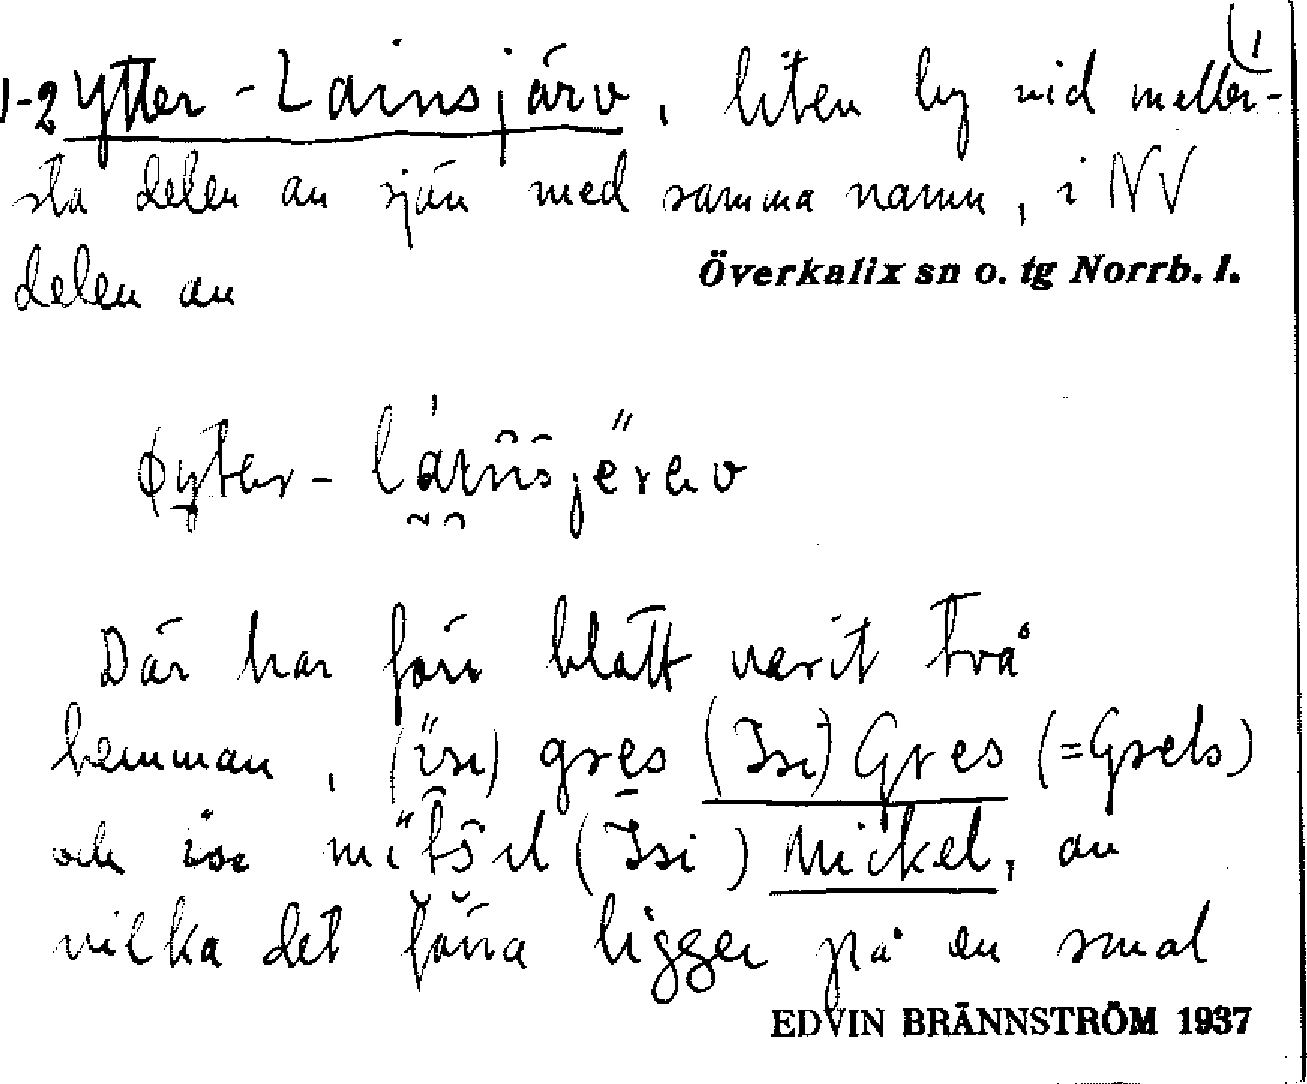 (1
1-2 Ytter-Lainsjärv, liten by vid meller-
sta delen av sjön med samma namn, i NV
delen av
Överkalix sn o. tg Norrb. l.
Där har förr blott varit två
hemman, (isi) gres (Isi) Gres (=Grels)
och isi (Isi) Mickel, av
vilka det förra ligger på en smal
EDVIN BRÄNNSTRÖM 1937